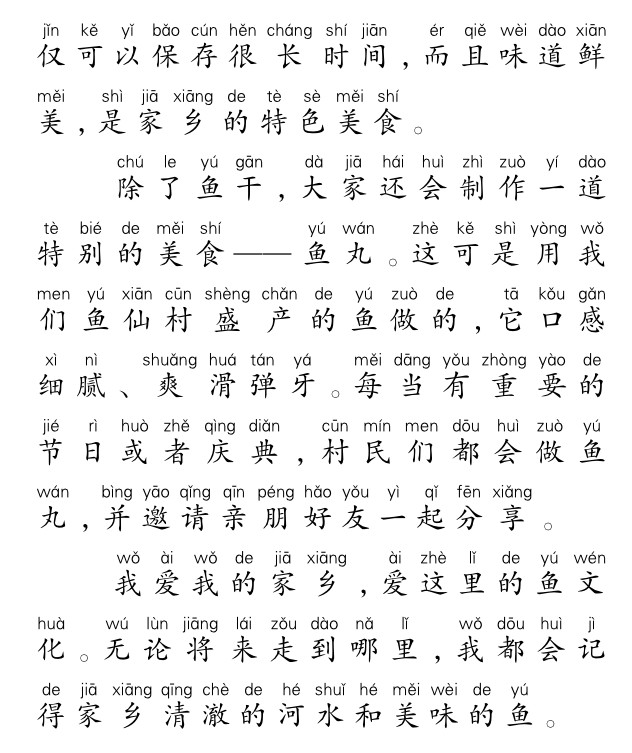 jǐn kě yǐ bǎo cún hěn cháng shí jiān ér qiě wèi dào xiān
仅可以保存很长时间,而且味道鲜
měi shì jiā xiāng de tè sè měi shí
美,是家乡的特色美食。
chú le yú gān dà jiā hái huì zhì zuò yí dào
除了鱼干,大家还会制作一道
tè bié de měi shí yú wán zhè kě shì yòng wǒ
特别的美食——鱼丸。这可是用我
men yú xiān cūn shèng chǎn de yú zuò de tā kǒu gǎn
们鱼仙村盛产的鱼做的,它口感
xì nì shuǎng huá tán yá měi dāng yǒu zhòng yào de
细腻、爽滑弹牙。每当有重要的
jié rì huò zhě qìng diǎn cūn mín men dōu huì zuò yú
节日或者庆典,村民们都会做鱼
wán bìng yāo qǐng qīn péng hǎo yǒu yì qǐ fēn xiǎng
丸,并邀请亲朋好友一起分享。
wǒ ài wǒ de jiā xiāng ài zhè lǐ de yú wén
我爱我的家乡,爱这里的鱼文
huà wú lùn jiāng lái zǒu dào nǎ lǐ wǒ dōu huì jì
化。无论将来走到哪里,我都会记
de jiā xiāng qīng chè de hé shuǐ hé měi wèi de yú
得家乡清澈的河水和美味的鱼。